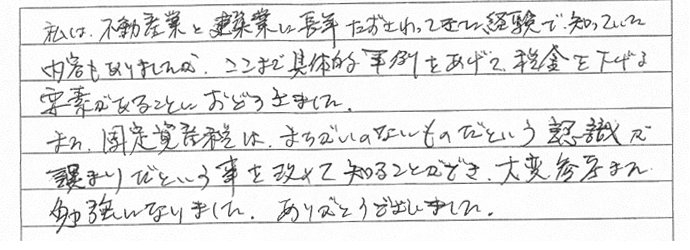 私は、不動産業と建築業に長年たずさわってきた経験で知っていた
内容もありましたが、ここまで具体的事例をあげて、税金を下げる
要素があることにおどろきました。
また、固定資産税は、まちがいのないものだという認識が
誤まりだという事を改めて知ることができ、大変参考また
勉強になりました。ありがとうございました。